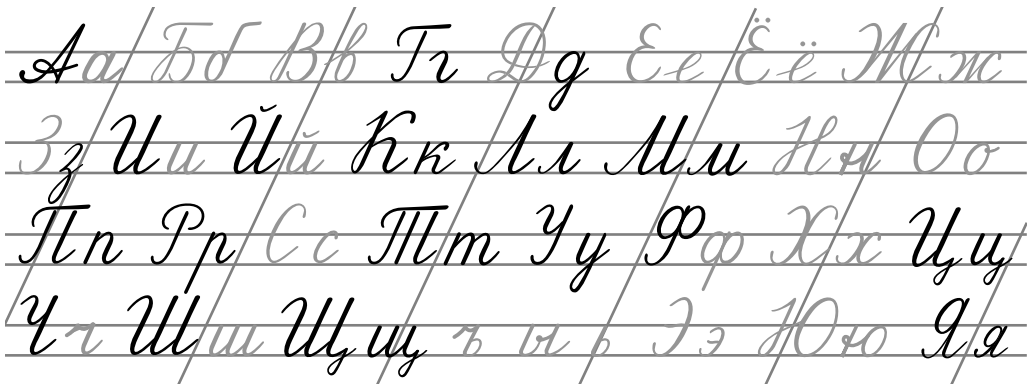 Аа Бб Вв Гг Дд Ее Ёё Жж
Зз Ии Йй Кк Лл Мм Нн Оо
Пп Рр Сс Тт Уу Фф Хх Цц
Чч Шш Щщ ъ ы ь Ээ Юю Яя